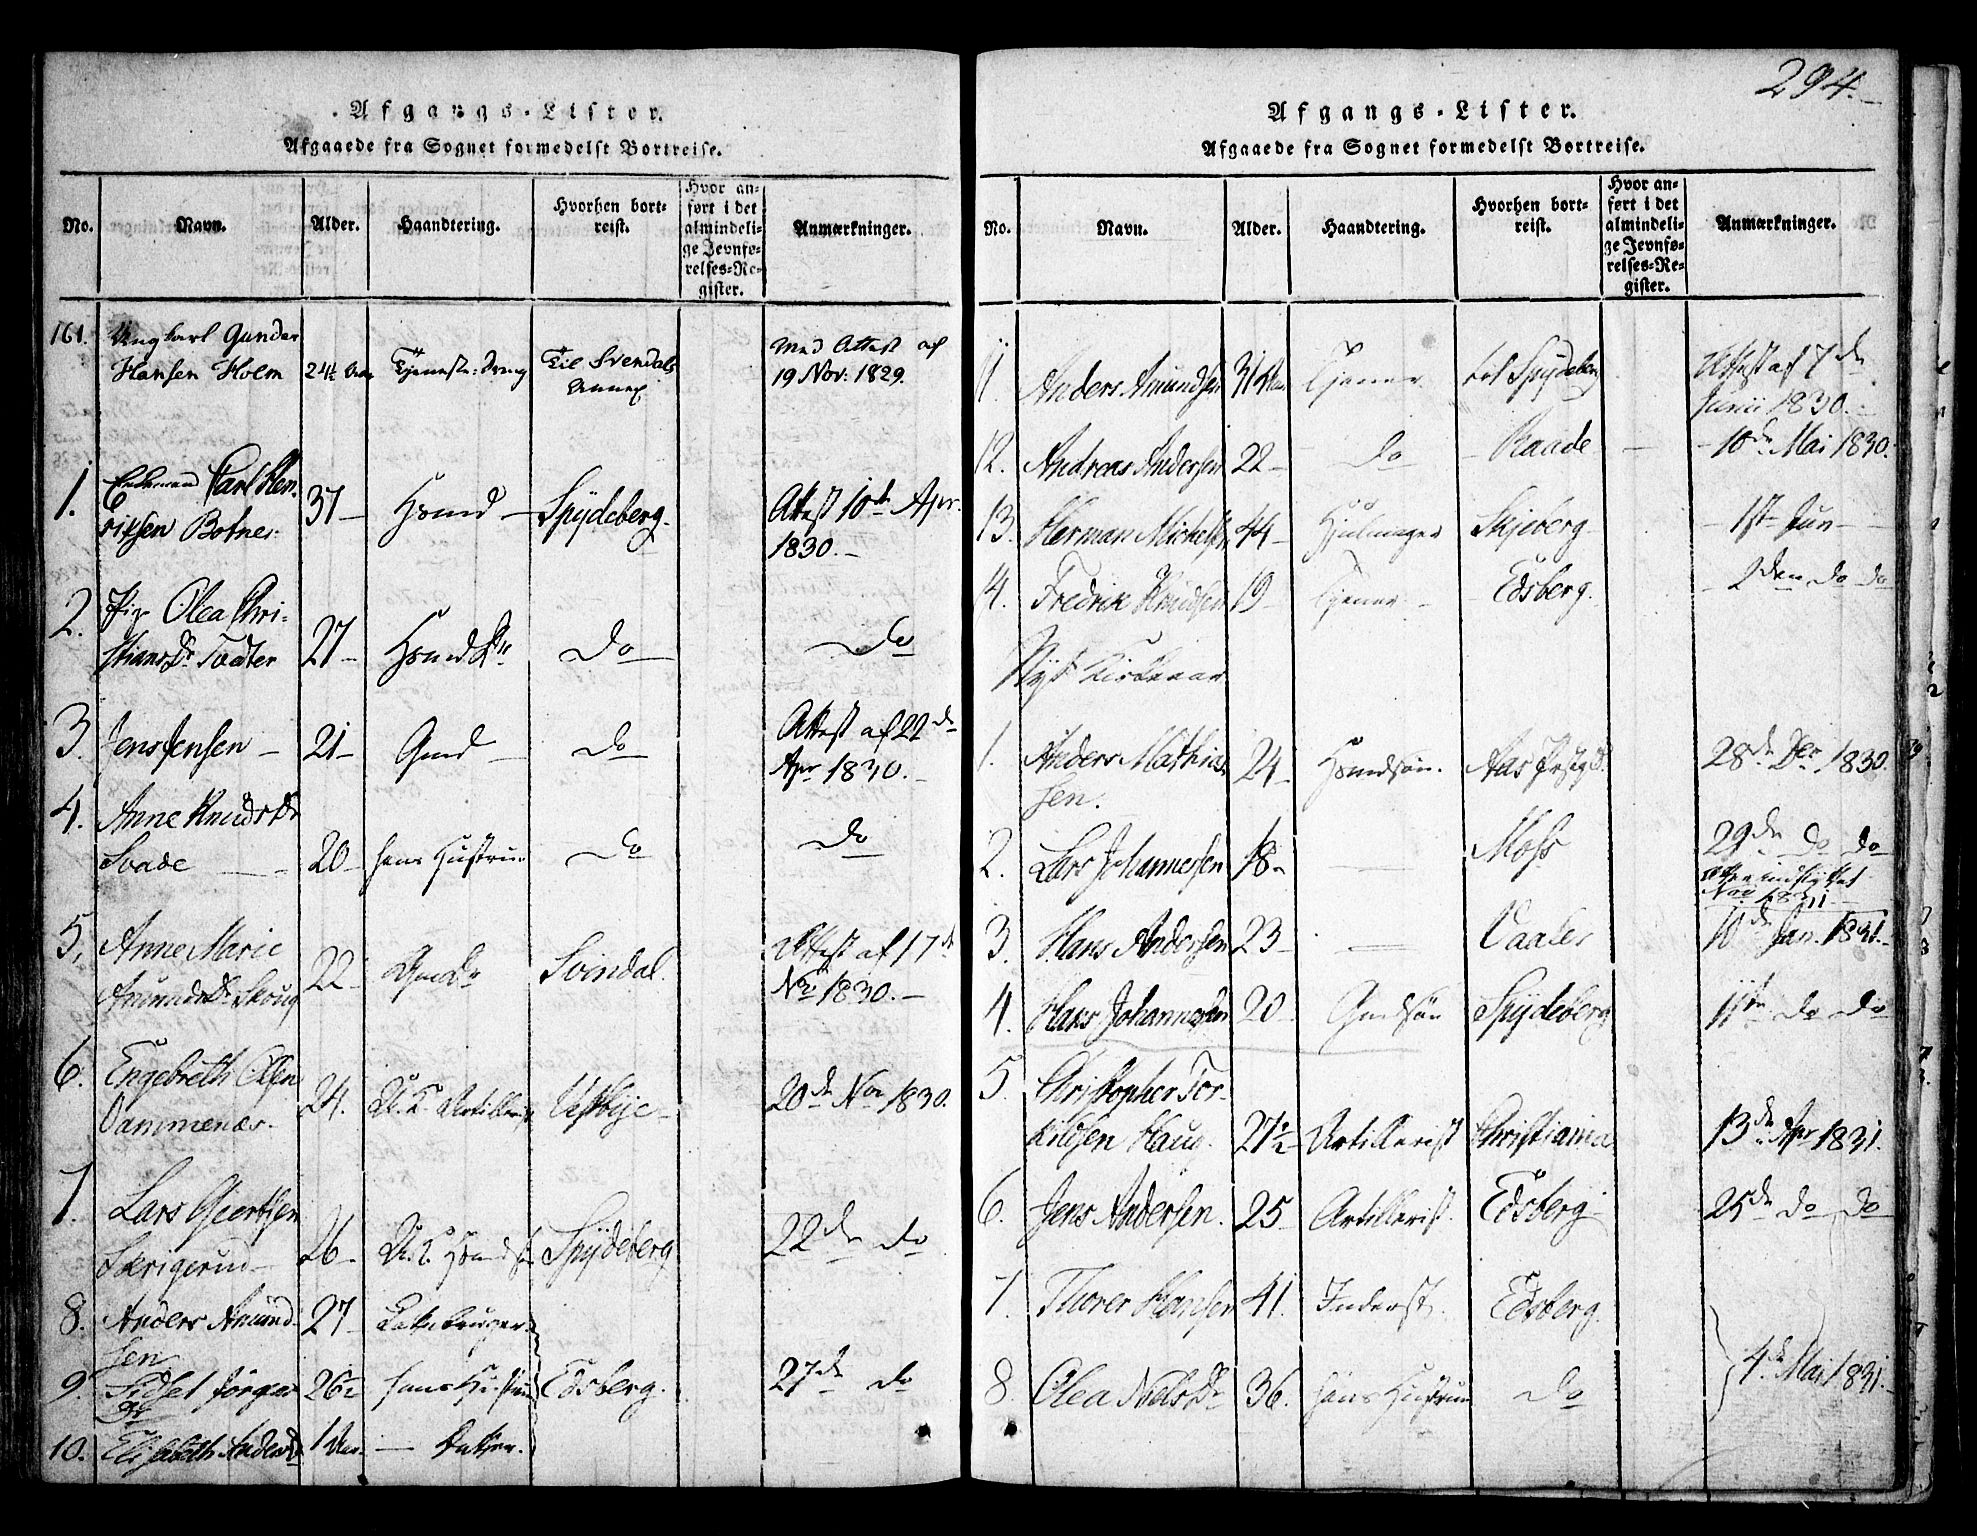 294.
Afgangs-Lister.
Afgaaede fra Sognet formedelst Bortreise.
No. Navn. Alder. Haandtering. Hvorhen bortreist. Hvor anført i det almindelige Jevnførelses-Register. Anmærkninger.
161. Ungkarl Gunder
Hansen Holm 24½ Aar Tjeneste-Dreng Til Svendals Annex Med Attest af 19 Nov: 1829.
1. Enkemand Carl Hen-
riksen Botner. 37 Hsmd Spydeberg. Attest 10de Apr. 1830.
2. Pige Olea Chri-
stiansDr Tvedter 27 HsmdDr Do Do
3. Jens Jensen 21 Gmd Do Attest af 22de Apr 1830.
4. Anne KnudsDr
Svade 20 hans Hustrue Do Do
5. Anne Marie
AmundsDr Skoug 22 GmdDr Svindal. Attest af 17de Nov 1830.
6. Engebreth Olsen
Dammenæs. 24. U. K. Artillerist Vestbye 20de Nov 1830.
7. Lars Gjertsen
Skrigerud 26 U. K. Hsmdsøn Spydeberg 22de do
8. Anders Amund-
sen 27 Leilendinger
9. Sidsel Jørgens
Dr 26½ hans Hustrue Edsberg. 27de do
10. Elisabeth AndersDr 1 Aar Datter.
Afgangs-Lister.
Afgaaede fra Sognet formedelst Bortreise.
No. Navn. Alder. Haandtering. Hvorhen bortreist. Hvor anført i det almindelige Jevnførelses-Register. Anmærkninger.
11. Anders Amundsen 31 Aar Tjener til Spydeberg Attest af 7de Junii 1830.
12. Andreas Andersen 22 do Raade 10de Mai 1830.
13. Herman Michelsen 44 Hjulmager Skjeberg 1ste Jun
14. Fredrik Knudsen 19 Tjener Edsberg. 2den do do
Nyt Kirkeaar
1. Anders Mathias
sen. 24 Hsmdsøn. Aas Præstgd. 28de Der 1830.
2. Lars Johannesen 18 Moss 29de do do
Nov 1831
3. Hans Andersen 23 Vaaler 10de Jan. 1831.
4. Hans Johannesen 20 Gmdsøn Spydeberg 11te do do
5. Christopher Tor-
kildsen Haug. 27½ Artillerist Christiania 13de Apr 1831.
6. Jens Andersen. 25 Artillerist. Edsberg 25de do do
7. Thorer Hansen 41. Inderst. Edsberg.
8. Olea NielsDr 36. hans Hustrue Do 4de Mai 1831.